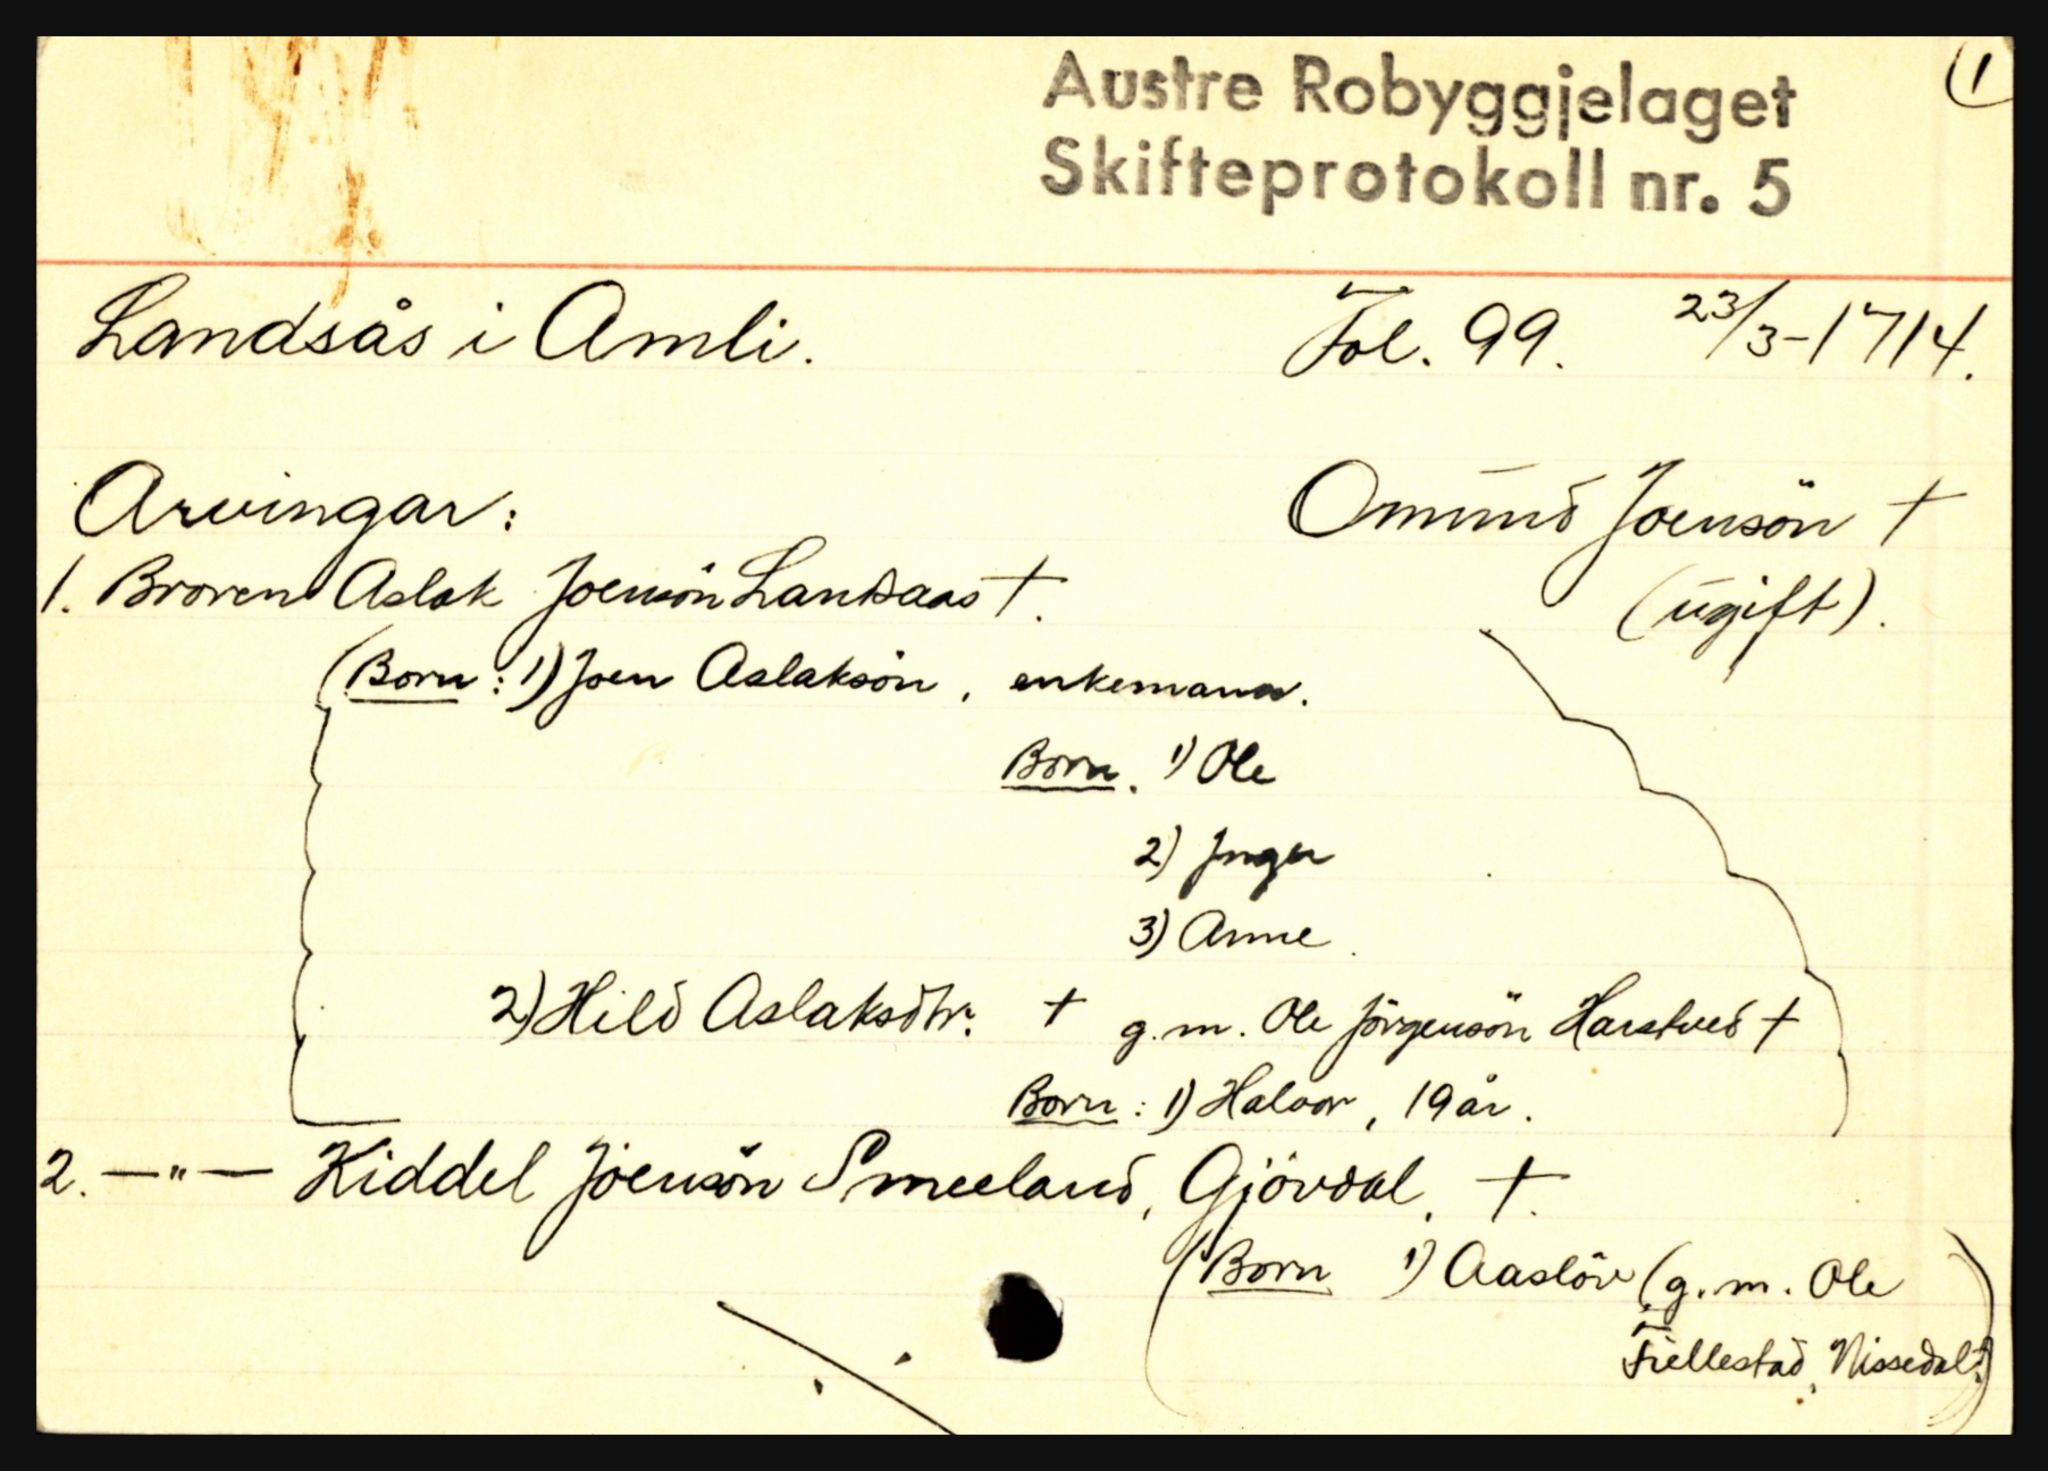 (1
Austre Robyggjelaget
Skifteprotokoll nr. 5
Landsås i Amli. Fol. 99. 23/3-1714.
Arvingar: Omund Joensön †
1. Broren Aslak Joensön Landsaas †. (ugift).
(Born: 1) Joen Aslaksön, enkemann.
Born. 1) Ole
2) Inger
3) Anne.
2) Hild Aslaksdtr: † g.m. Ole Jörgensön Harstved †
Born: 1) Halvor, 19 år.
2. —"— Kiddel Joensön Smeeland, Gjövdal. †.
(Born 1) Aaslöv (g.m. Ole
Fiellestad, Nissedal.)